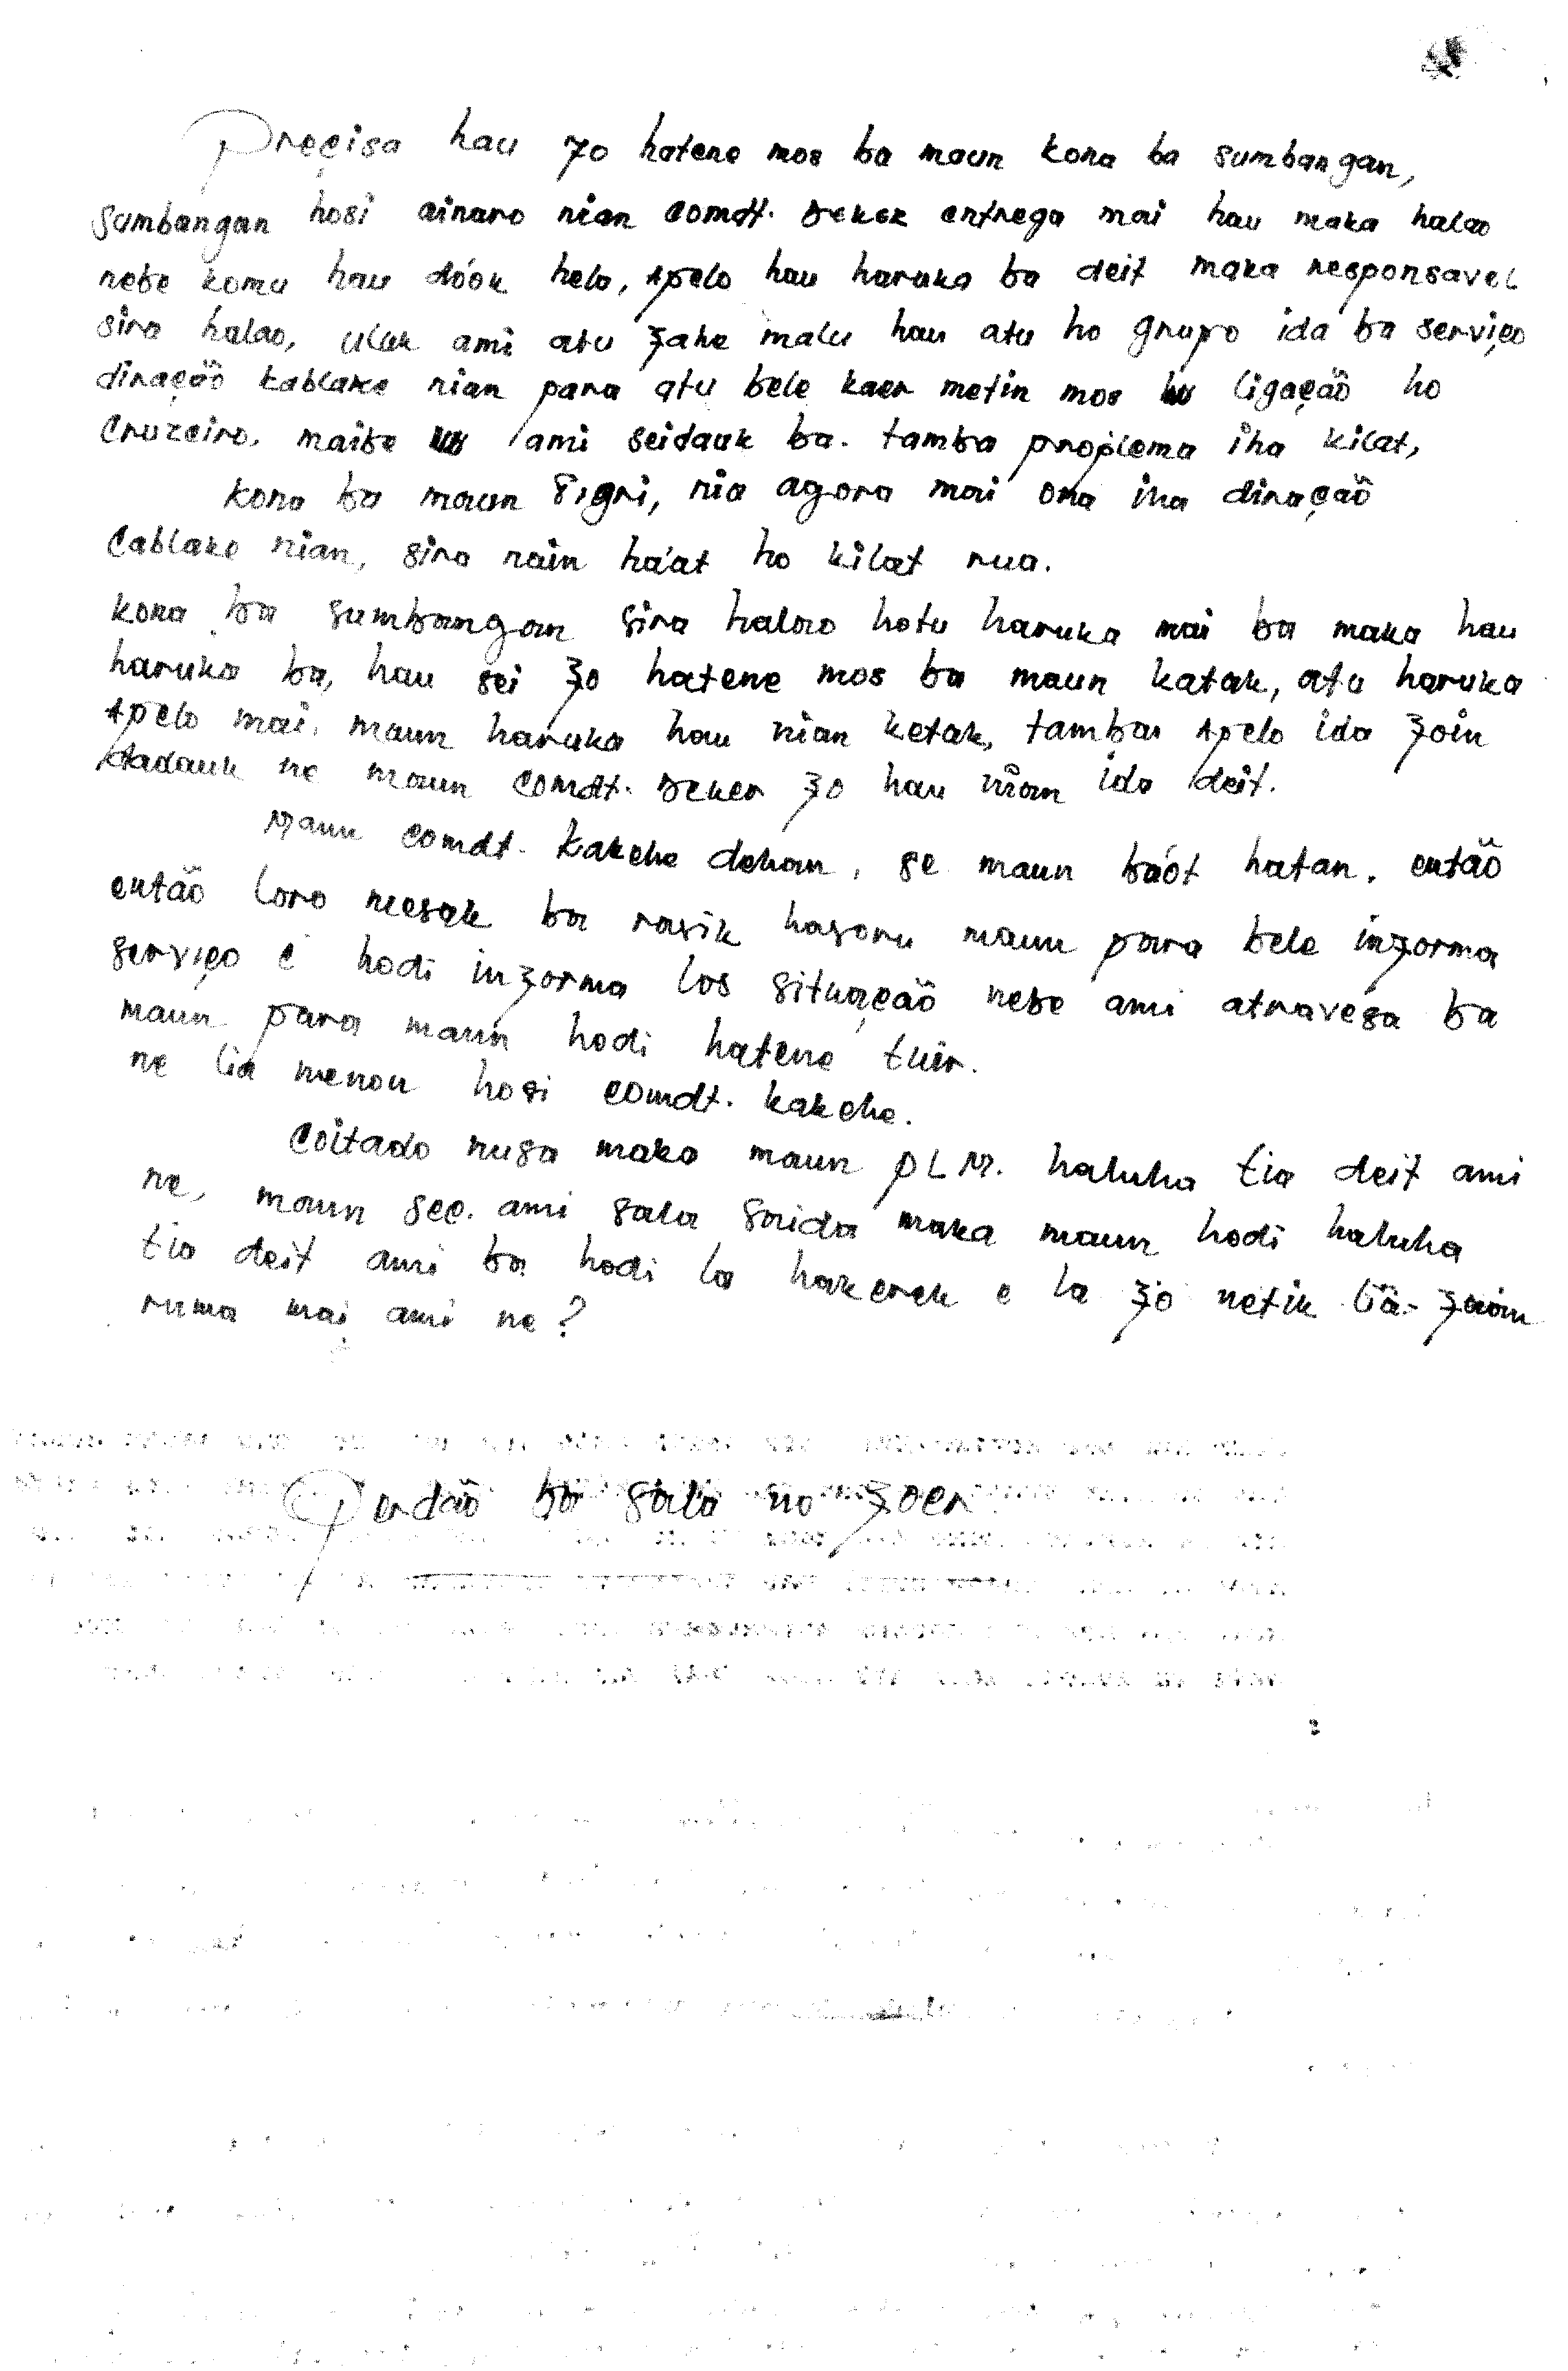 Preçisa hau fo hatene mos ba maun kona ba sumbangan,
sumbangan hosi ainaro nian comdt. Deker entrega mai hau maka halao
nebe komu hau dóok hela, Apelo hau haruka ba deit maka responsavel
sira halao, uluk ami atu fahe malu hau atu ho grupo ida ba serviço
diração kablake nian para atu bele kaer metin mos ligação ho
Cruzeiro. maibe ami seidauk ba. tamba proplema iha kilat,
kona ba maun Sigri, nia agora mai ona iha diração
Cablake nian, sira nain há'at ho kilat rua.
kona ba sumbangan sira halao hotu haruka mai ba maka hau
haruka ba, hau sei fo hatene mos ba maun katak, atu haruka
Apelo mai, maun haruka hau nian ketak, tamba Apelo ida foin
dadauk ne maun comdt. Deker fo hau nian ida deit.
Maun comdt. kakehe dehan, se maun báot hatan. então
então loro mesak ba rasik hasoru maun para bele informa
serviço e hodi informa los situação nebe ami atravesa ba
maun para maun hodi hatene tuir.
ne lia menon hosi comdt. kakehe.
Coitado nusa maka maun PLM. haluha tia deit ami
ne, maun sec. ami sala saida maka maun hodi haluha
tia deit ami ba hodi la hakerek e la fo netik lia-foin
ruma mai ami ne?
Perdão ba sala no foer